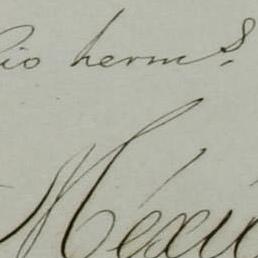 io herm.s
Méxic